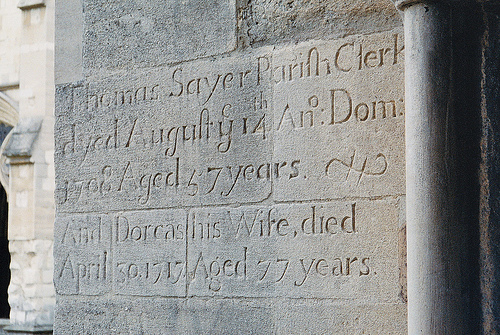 Thomas Sayer Parish Clerk
dyed August yᵉ 14ᵗʰ Anº: Dom:
1708 Aged 57 years.
And Dorcas his Wife, died
April 30. 1717 Aged 77 years.